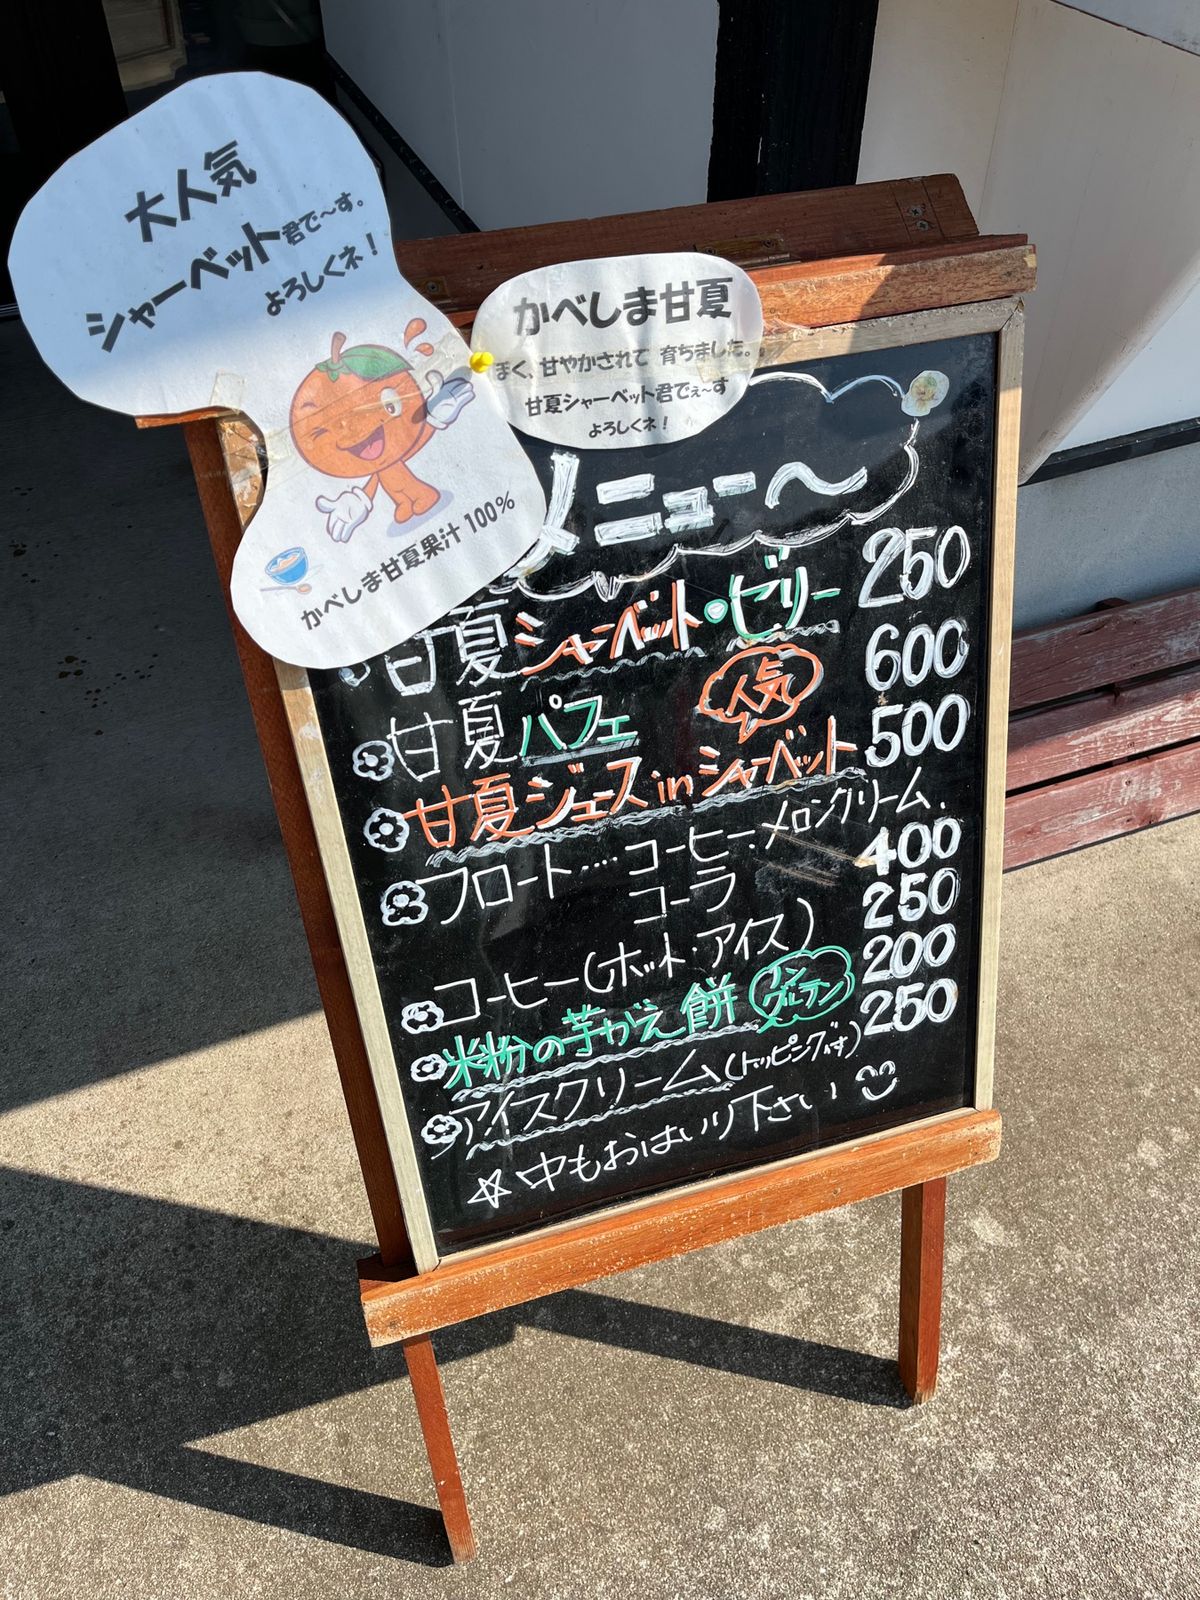 大人気
シャーベット君で～す。
よろしくネ！
かべしま甘夏果汁100%
かべしま甘夏
ぼく、甘やかされて 育ちました。
甘夏シャーベット君でぇ～す
よろしくネ！
メニュー～
甘夏シャーベット・ゼリー 250
甘夏パフェ 人気 600
甘夏ジュースinシャーベット 500
フロート‥‥コーヒー．メロンクリーム．
コーラ 400
コーヒー(ホット・アイス) 250
米粉の芋がえ餅 ノングルテン 200
アイスクリーム(トッピングです) 250
☆中もおはいり下さい